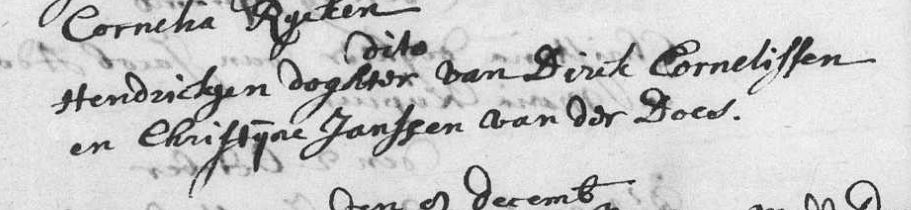 Cornelia Rycken
dito
Hendrickjen doghter van Dirck Cornelissen
en Christyne Janssen van der Does.
den decemb